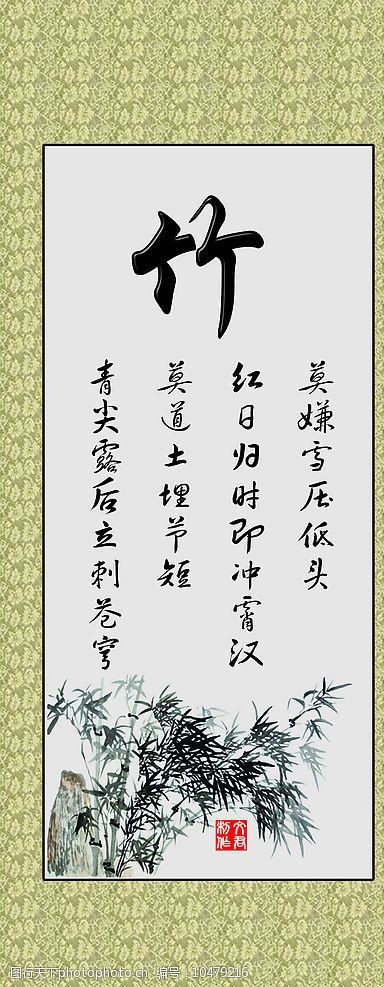 竹
莫嫌雪压低头
红日归时即冲霄汉
莫道土埋节短
青尖露后立刺苍穹
文君
制作
图行天下photophoto.cn 编号:10479216